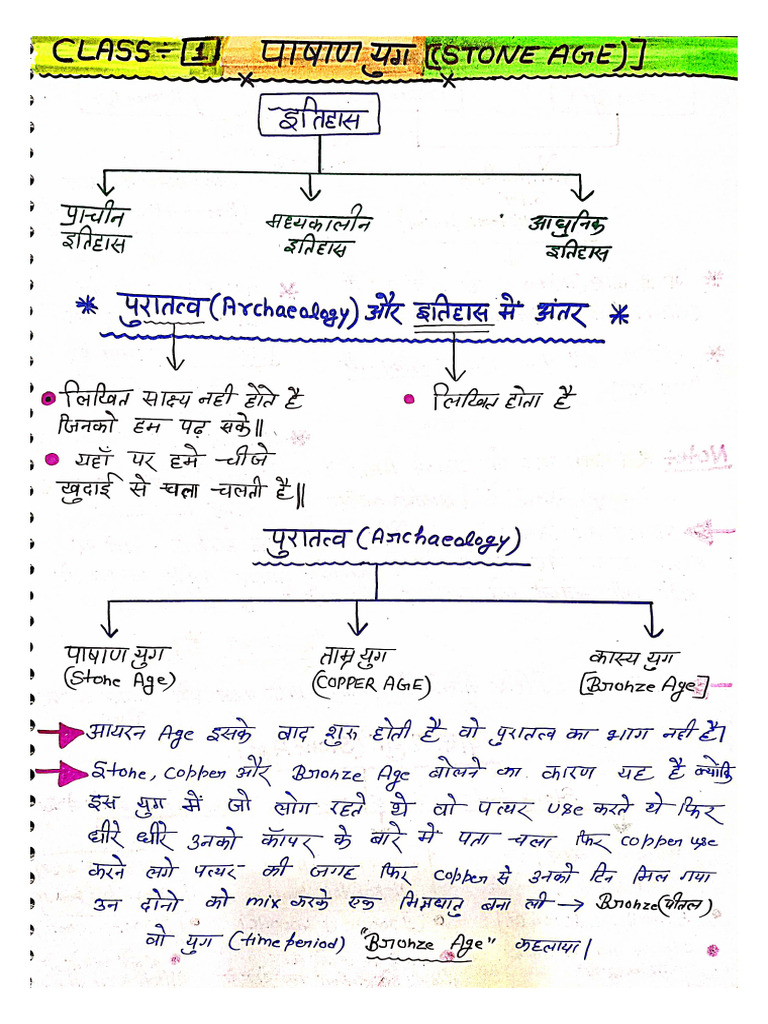 CLASS÷ [1] पाषाण युग [(STONE AGE)]
इतिहास
प्राचीन मध्यकालीन आधुनिक
इतिहास इतिहास इतिहास
* पुरातत्व (Archaeology) और इतिहास में अंतर *
लिखित साक्ष्य नही होते है • लिखित होता है
जिनको हम पढ़ सके॥
यहाँ पर हमे चीजे
खुदाई से चला चलती है॥
पुरातत्व (Archaeology)
पाषाण युग ताम्र युग कास्य युग
(Stone Age) (COPPER AGE) [Bronze Age]
आयरन Age इसके बाद शुरु होती है वो पुरातत्व का भाग नही है।
Stone, Copper और Bronze Age बोलने का कारण यह है क्योंकि
इस युग में जो लोग रहते थे वो पत्थर use करते थे फिर
धीरे धीरे उनको कॉपर के बारे में पता चला फिर copper use
करने लगे पत्थर की जगह फिर copper से उनको टिन मिल गया
उन दोनो को mix करके एक मिश्रधातु बना ली → Bronze (पीतल)
वो युग (time period) "Bronze Age" कहलाया।